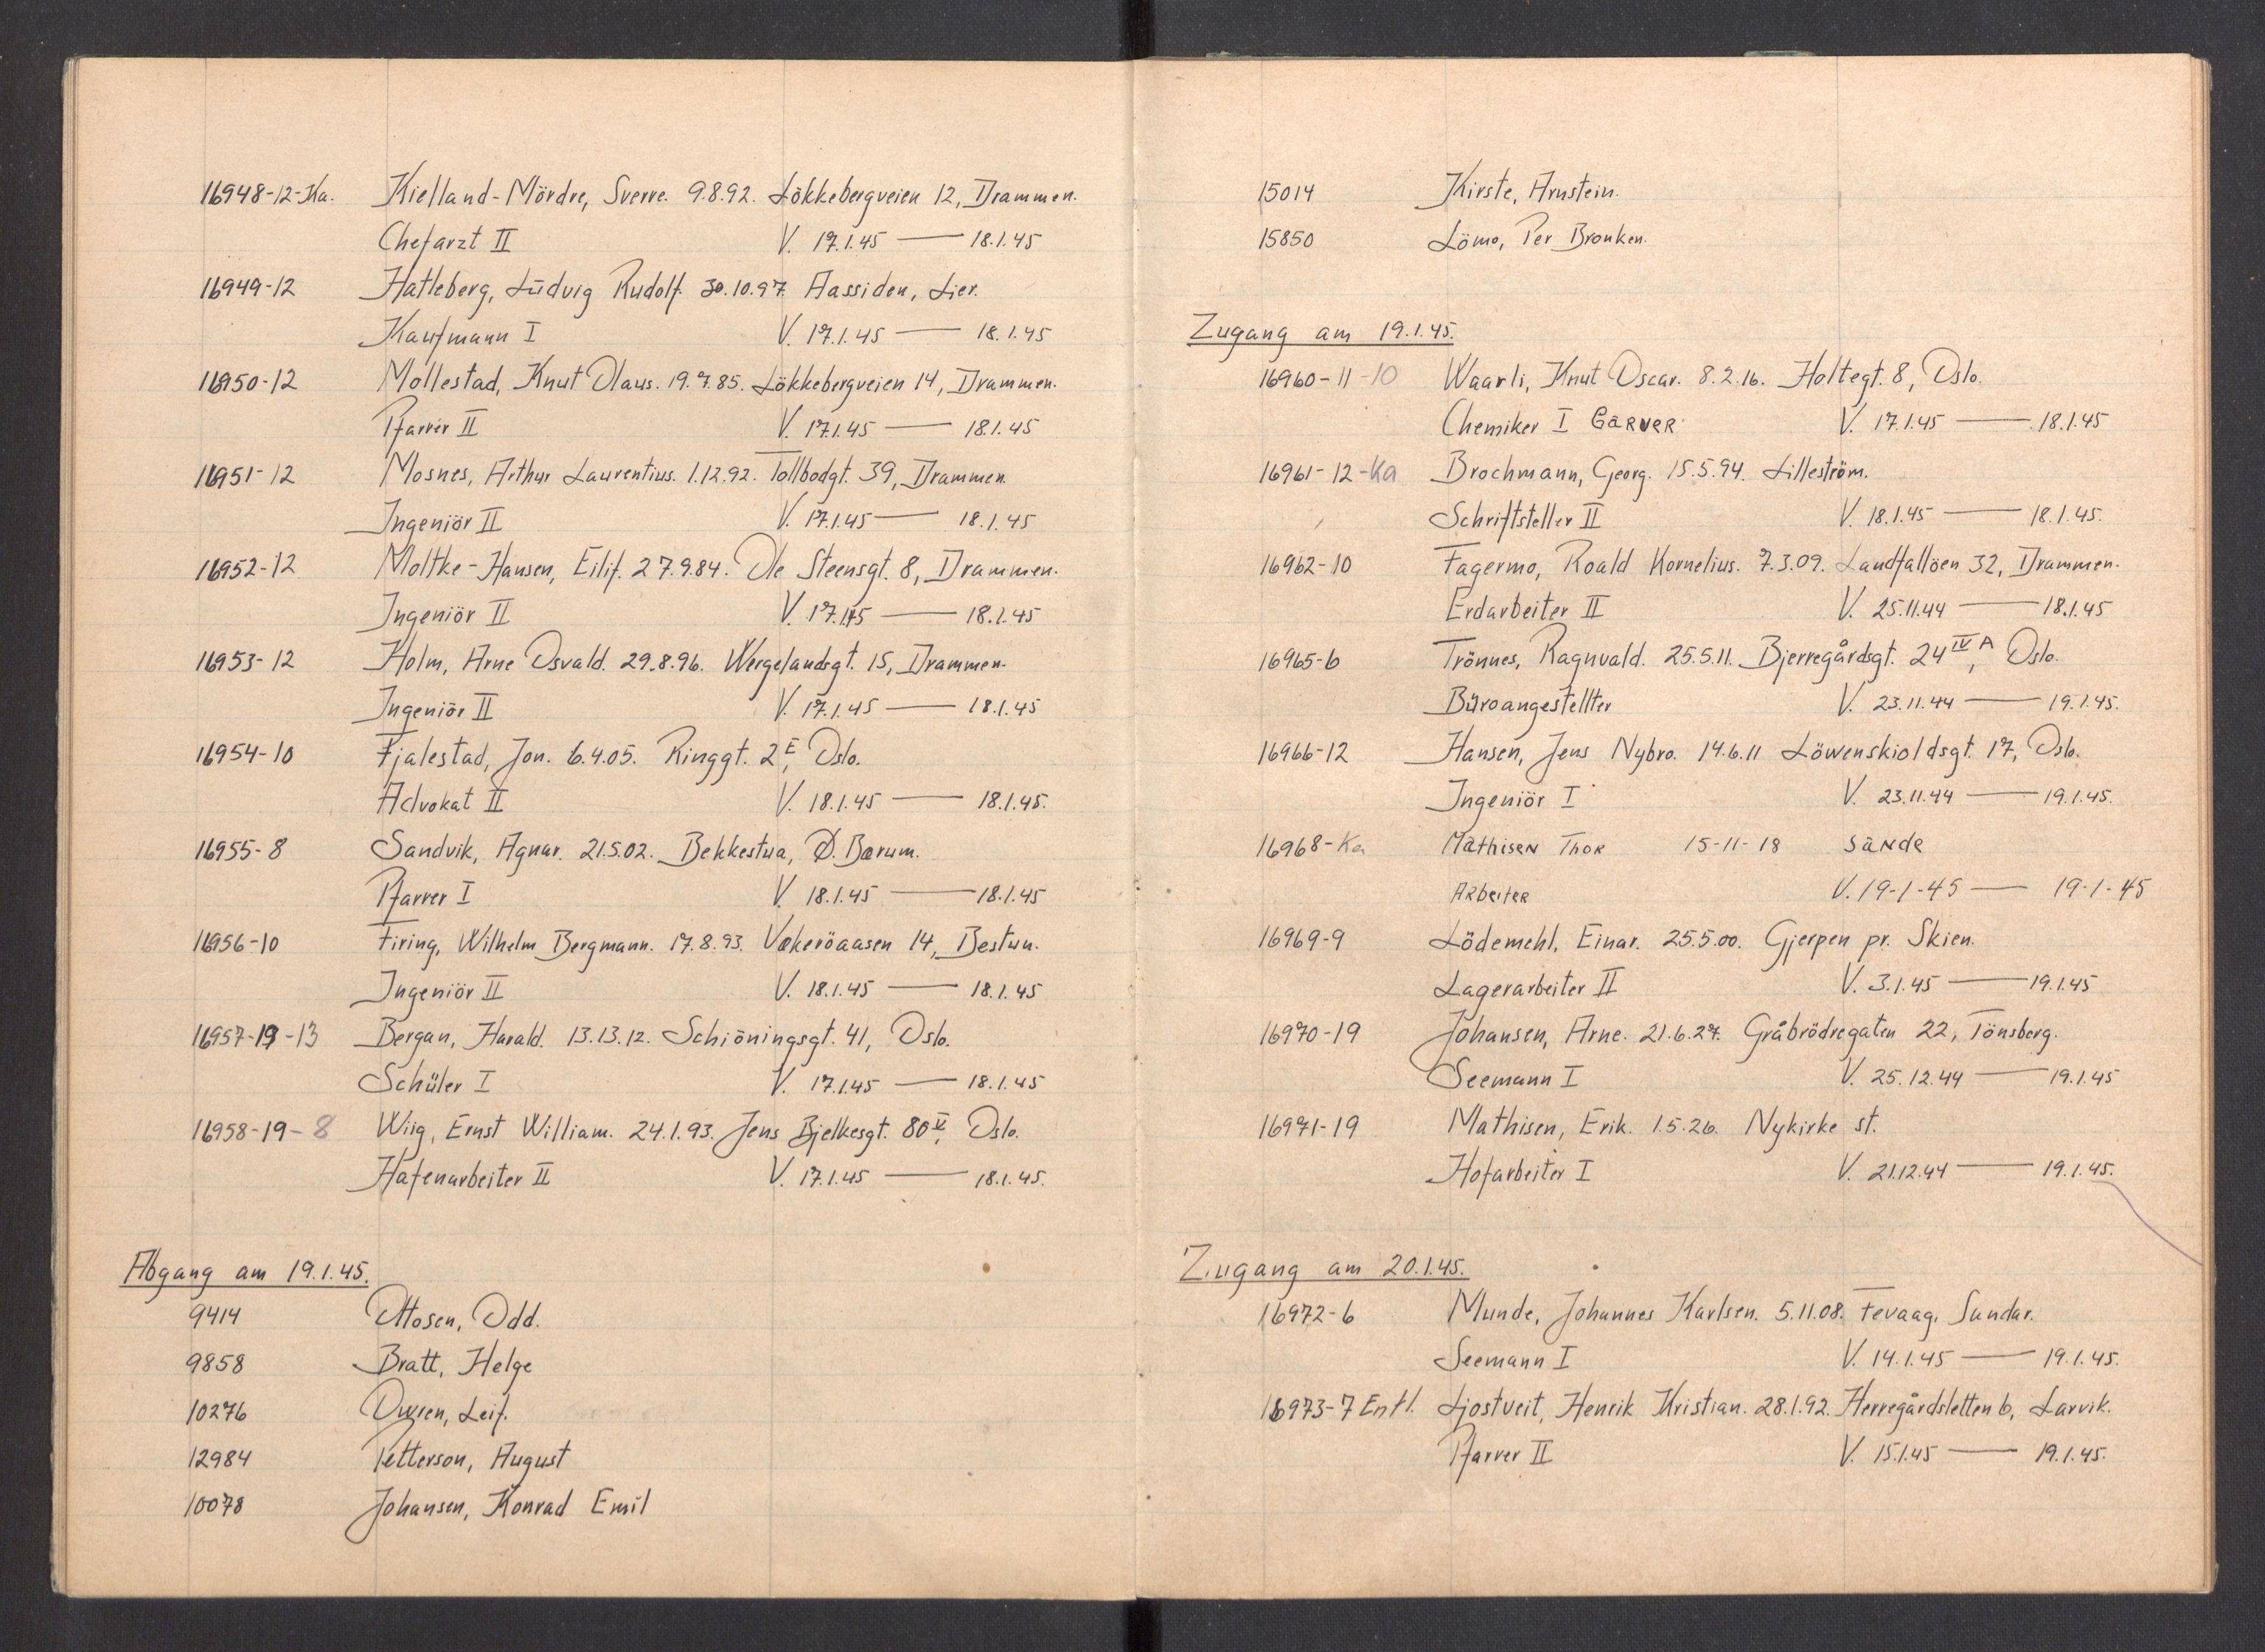 16948-12-Ka. Kielland-Mördre, Sverre. 9.8.92. Lökkebergveien 12, Drammen.
Chefarzt II V. 17.1.45 — 18.1.45
16949-12 Hatleberg, Ludvig Rudolf. 30.10.97. Aassiden, Lier.
Kaufmann I V. 17.1.45 — 18.1.45
16950-12 Mollestad, Knut Olaus. 19.7.85. Lökkebergveien 14, Drammen.
Pfarrer II V. 17.1.45 — 18.1.45
16951-12 Mosnes, Arthur Laurentius. 1.12.92. Tollbodgt. 39, Drammen.
Ingeniör II V. 17.1.45 — 18.1.45
16952-12 Moltke-Hansen, Eilif. 27.9.84. Ole Steensgt. 8, Drammen.
Ingeniör II V. 17.1.45 — 18.1.45
16953-12 Holm, Arne Osvald. 29.8.96. Wergelandsgt. 15, Drammen.
Ingeniör II V. 17.1.45 — 18.1.45
16954-10 Fjalestad, Jon. 6.4.05. Ringgt. 2E, Oslo.
Advokat II V. 18.1.45 — 18.1.45.
16955-8 Sandvik, Agnar. 21.5.02. Bekkestua, Ø. Bærum.
Pfarrer I V. 18.1.45 — 18.1.45
16956-10 Firing, Wilhelm Bergmann. 17.8.93. Vækeröaasen 14, Bestun.
Ingeniör II V. 18.1.45 — 18.1.45
16957-19-13 Bergan, Harald. 13.13.12. Schiöningsgt. 41, Oslo.
Schüler I V. 17.1.45 — 18.1.45
16958-19-8 Wiig, Ernst William. 24.1.93. Jens Bjelkesgt. 80 V, Oslo.
Hafenarbeiter II V. 17.1.45 — 18.1.45.
Abgang am 19.1.45.
9414 Ottosen, Odd.
9858 Bratt, Helge
10276 Owren, Leif.
12984 Petterson, August
10078 Johansen, Konrad Emil
15014 Kirste, Arnstein.
15850 Lömo, Per Bronken.
Zugang am 19.1.45.
16960-11-10 Waarli, Knut Oscar. 8.2.16. Holtegt. 8, Oslo.
Chemiker I GARVER V. 17.1.45 — 18.1.45
16961-12-Ka Brochmann, Georg. 15.5.94. Lilleström.
Schriftsteller II V. 18.1.45 — 18.1.45.
16962-10 Fagermo, Roald Kornelius. 7.3.09. Landfallöen 32, Drammen.
Erdarbeiter II V. 25.11.44 — 18.1.45
16965-6 Trönnes, Ragnvald. 25.5.11. Bjerregårdsgt. 24 IV A, Oslo.
Büroangestellter V. 23.11.44 — 19.1.45.
16966-12 Hansen, Jens Nybro. 14.6.11 Löwenskioldsgt. 17, Oslo.
Ingeniör I V. 23.11.44 — 19.1.45.
16968-Ka Mathisen Thor 15-11-18 Sande
Arbeiter V. 19-1-45 — 19-1-45
16969-9 Lödemehl, Einar. 25.5.00. Gjerpen pr. Skien.
Lagerarbeiter II V. 3.1.45 — 19.1.45
16970-19 Johansen, Arne. 21.6.27. Gråbrödregaten 22, Tönsberg.
Seemann I V. 25.12.44 — 19.1.45
16971-19 Mathisen, Erik. 1.5.26. Nykirke st.
Hofarbeiter I V. 21.12.44 — 19.1.45.
Zugang am 20.1.45.
16972-6 Munde, Johannes Karlsen. 5.11.08. Fevaag, Sandar.
Seemann I V. 14.1.45 — 19.1.45.
16973-7 Entl. Ljostveit, Henrik Kristian. 28.1.92. Herregårdsletten 6, Larvik.
Pfarrer II V. 15.1.45 — 19.1.45.